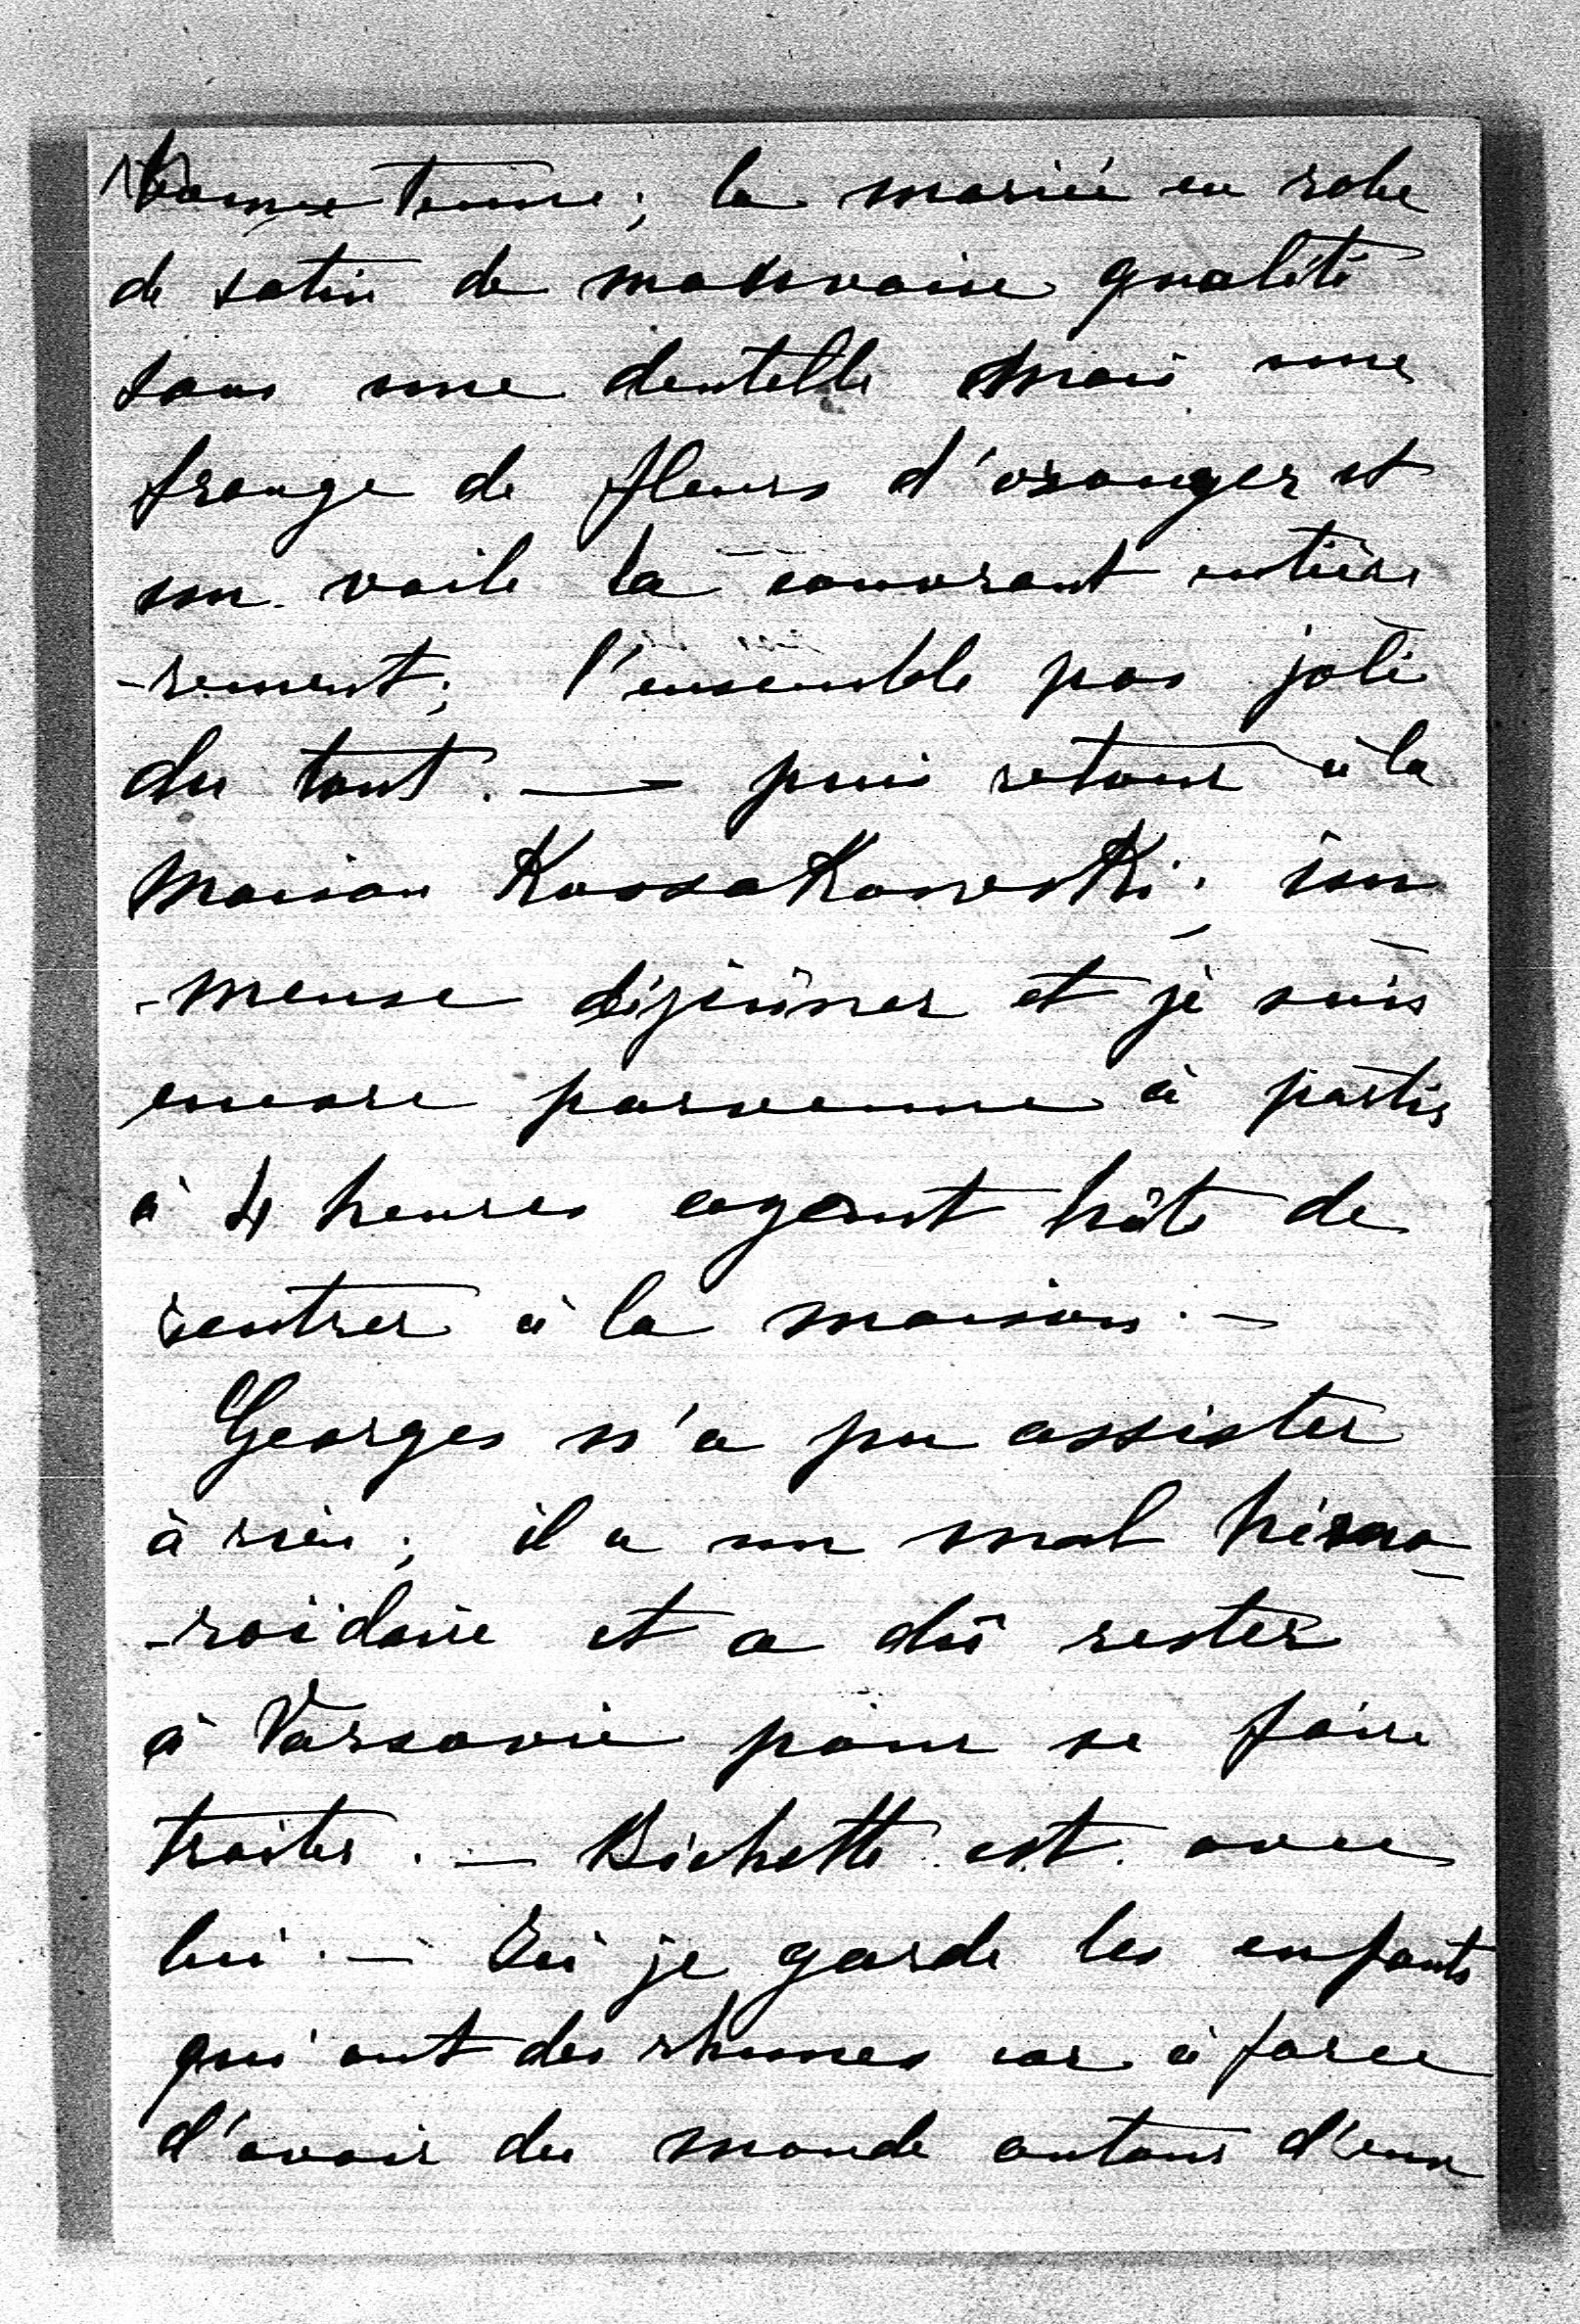 bonne tenue; la mariée en robe
de satin de mauvaise qualité
sans une dentelle mais une
frange de fleurs d'oranger et
son voile la couvrant entière
-rement; l'ensemble pas joli
du tout. — puis retour à la
maison Kossakowski; im
-mense déjeûner et je suis
encore parvenue à partir
à 4 heures ayant hâte de
rentrer à la maison. —
Georges n'a pu assister
à rien; il a un mal hémo
-roïdaire et a dû rester
à Varsovie pour se faire
traiter. — Bichette est avec
lui. — Ici je garde les enfants
qui ont des rhumes car à force
d'avoir du monde autour d'eux